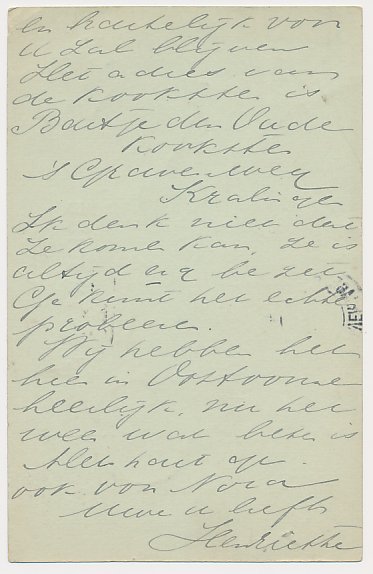 en hartelijk von
u zal blijven
Het adres van
de kookster is
Baatje den Oude
Kookster
's Gravenweg
Kralingen
Ik denk niet dat
ze komen kan, ze is
altijd erg bezet
Gje kunt het echter
probeeren.
Wij hebben het
hier in Oostvoorne
heerlijk, nu het
weer wat beter is
Met hart gr.
ook von Nora
Uwe u liefh
Henriette